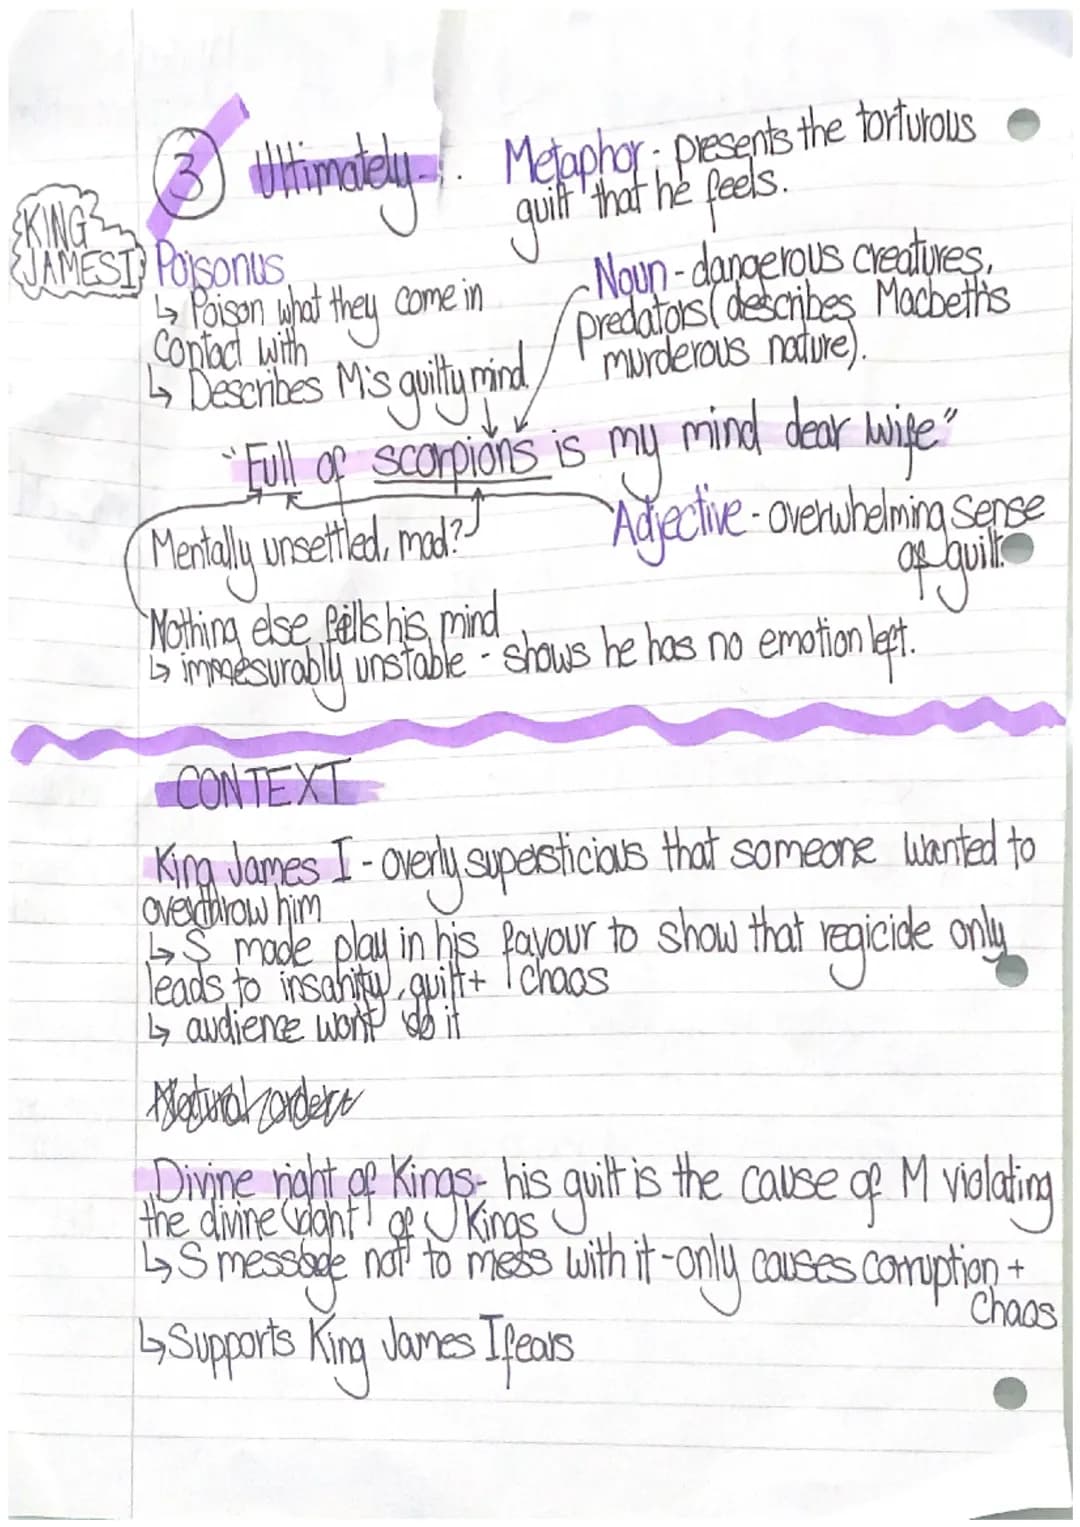 3 Ultimately..
Metaphor - presents the torturous
guilt that he feels.
KING
JAMES I
Poisonus
↳ Poison what they come in
contact with
↳ Describes M's guilty mind.
Noun - dangerous creatures,
predators (describes Macbeth's
murderous nature).
"Full of scorpions is my mind dear wife"
Mentally unsettled, mad?
Adjective - overwhelming sense
of guilt.
Nothing else fills his mind
↳ immesurably unstable - shows he has no emotion left.
CONTEXT
King James I - overly supersticious that someone wanted to
overthrow him
↳ S made play in his favour to show that regicide only
leads to insanity, guilt + chaos
↳ audience won't do it
Natural order
Divine right of Kings - his guilt is the cause of M violating
the divine right of Kings
↳ S message not to mess with it - only causes corruption +
chaos
↳ Supports King James I fears